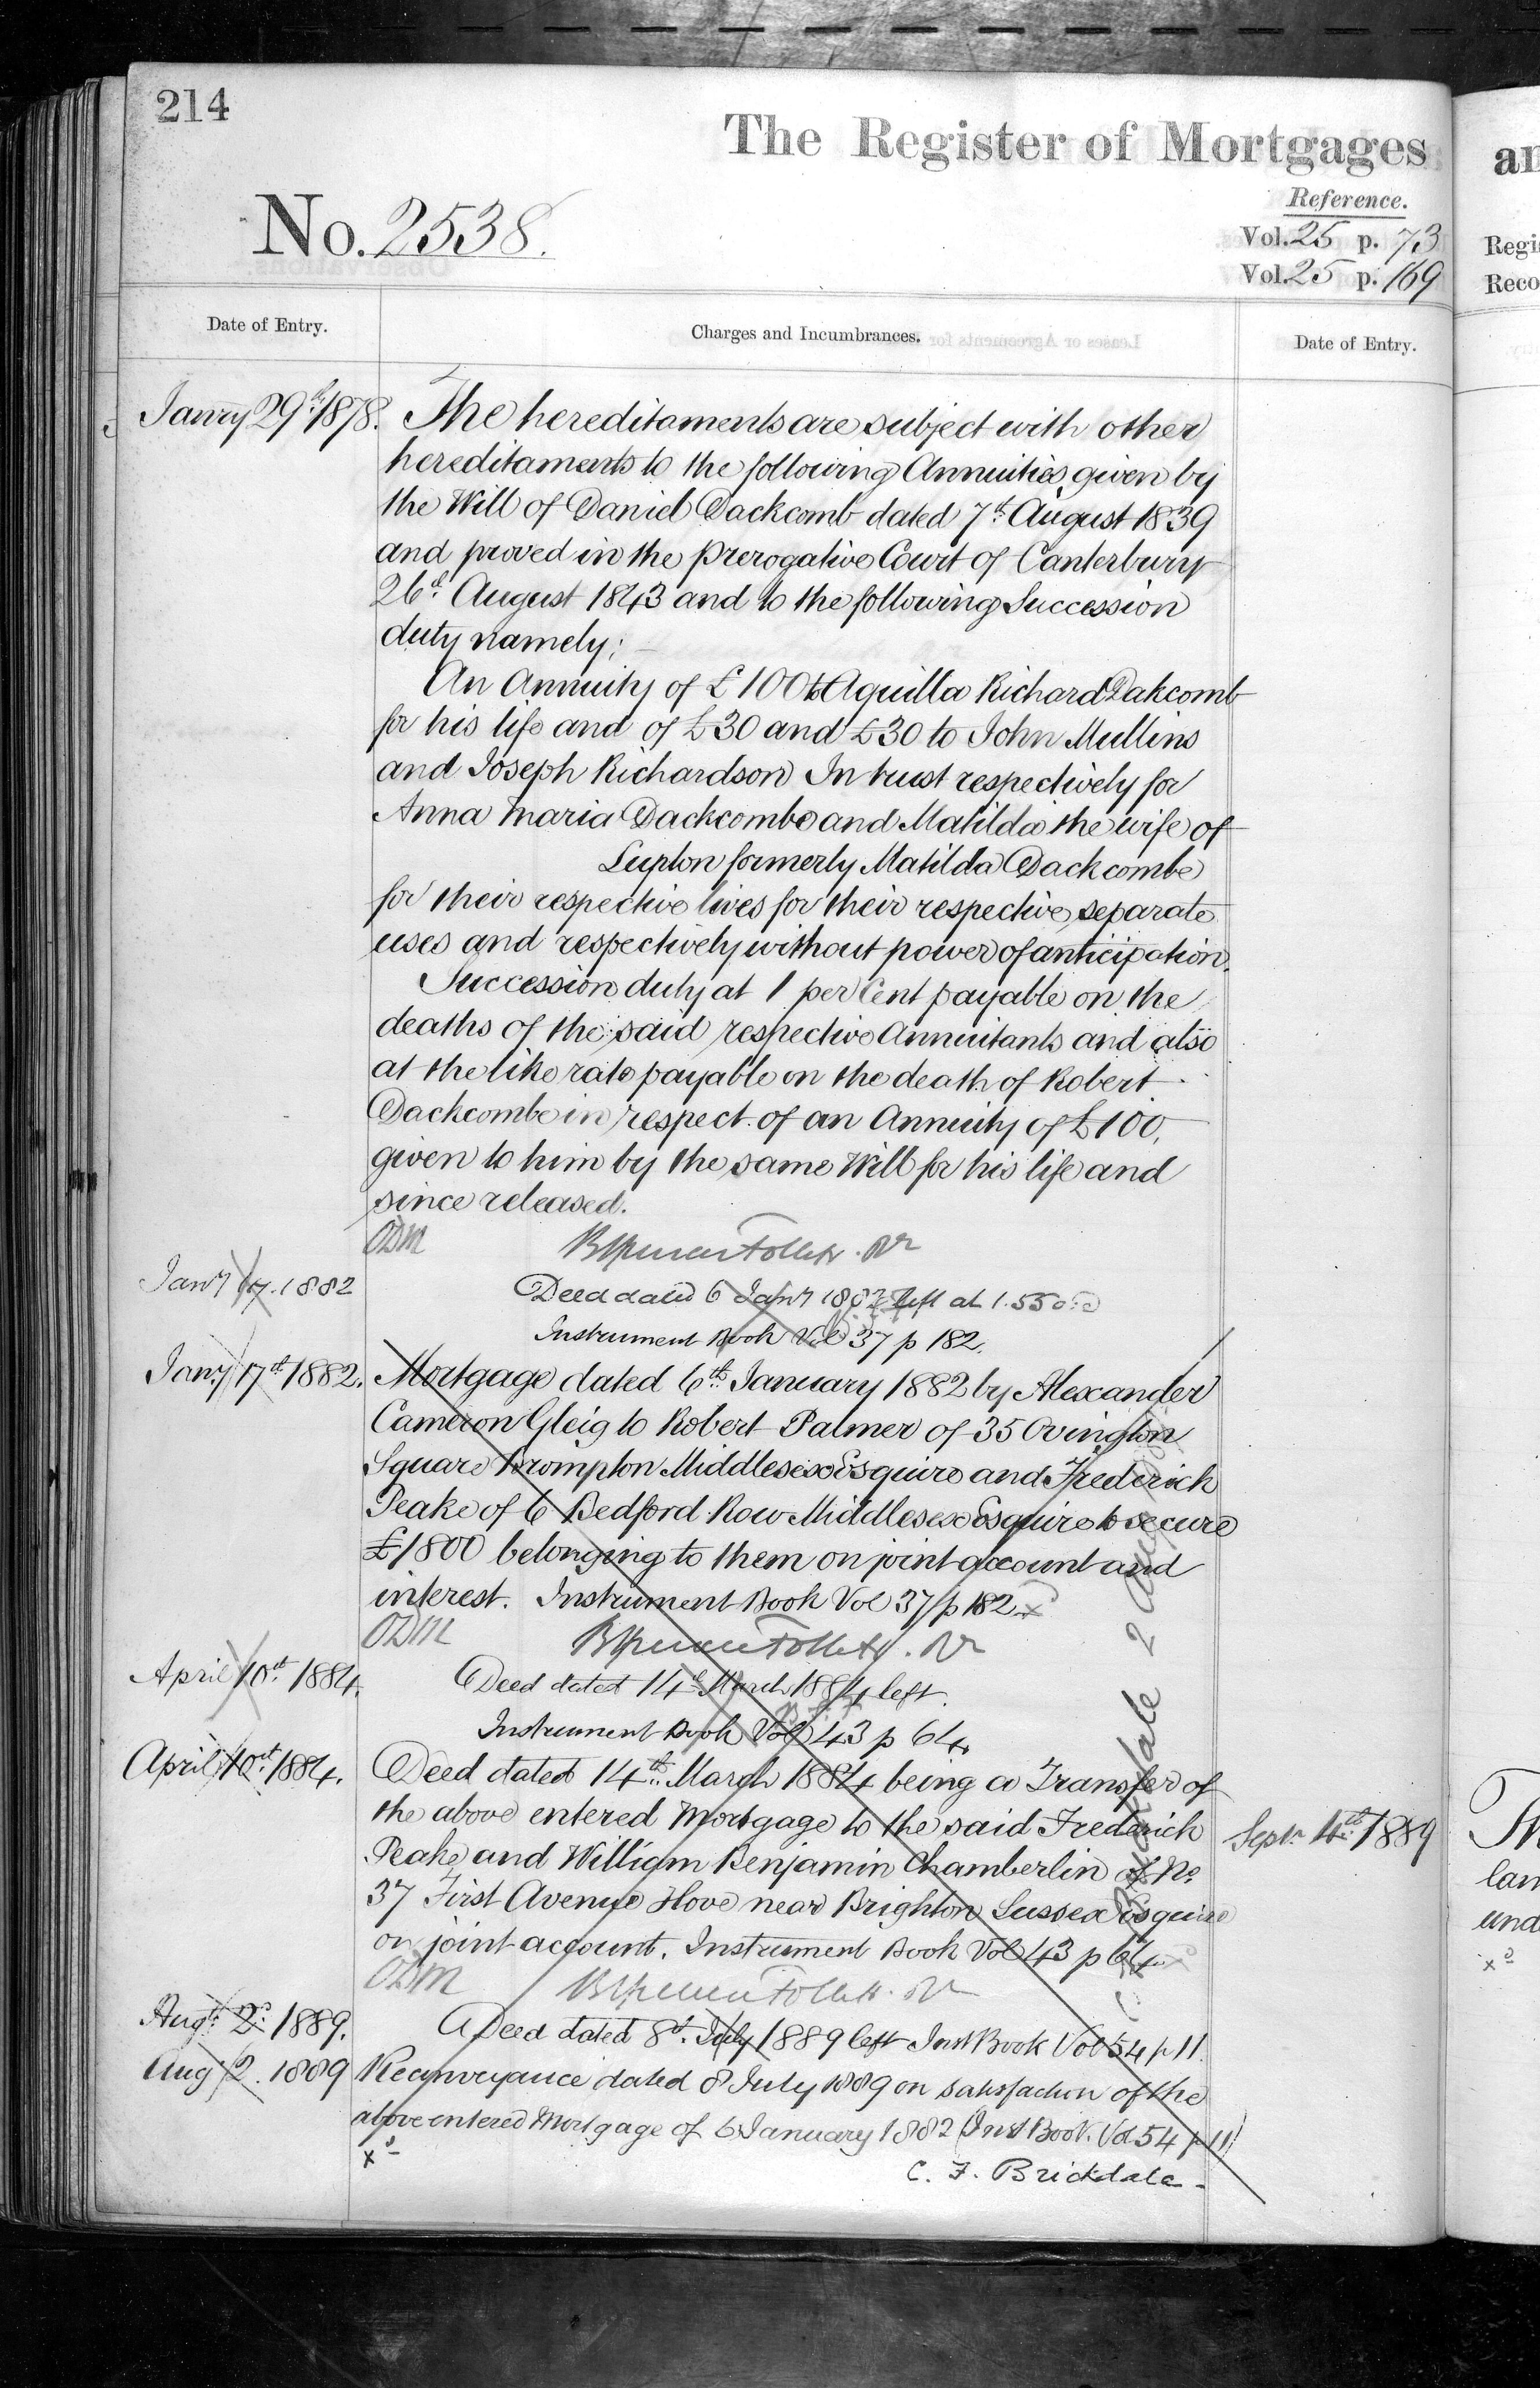 214
The Register of Mortgages
Reference.
No. 2538.
Vol. 25 p. 73
Vol. 25 p. 169
Date of Entry.
Charges and Incumbrances.
Date of Entry.
Janry 29th 1878.
The hereditaments are subject with other
hereditaments to the following Annuities given by
the Will of Daniel Dackcomb dated 7th August 1839
and proved in the Prerogative Court of Canterbury
26th August 1843 and to the following Succession
duty namely;
An Annuity of £100 to Aquilla Richard Dakcomb
for his life and of £30 and £30 to John Mullins
and Joseph Richardson In trust respectively for
Anna Maria Dackcombe and Matilda the wife of
Lupton formerly Matilda Dackcombe
for their respective lives for their respective separate
uses and respectively without power of anticipation.
Succession duty at 1 per Cent payable on the
deaths of the said respective Annuitants and also
at the like rate payable on the death of Robert
Dackcombe in respect of an Annuity of £100,
given to him by the same Will for his life and
since released.
ODM BSpencer Follett.
Jany 17. 1882
Deed dated 6 Jany 1882 left at 1.55
Instrument Book Vol 37 p 182.
Jany 17th 1882.
Mortgage dated 6th January 1882 by Alexander
Cameron Gleig to Robert Palmer of 35 Ovington
Square Brompton Middlesex Esquire and Frederick
Peake of 6 Bedford Row Middlesex Esquire to secure
£1800 belonging to them on joint account and
interest. Instrument Book Vol 37 p 182
ODM BSpencer Follett.
April 10th 1884.
Deed dated 14th March 1884 left.
Instrument Book Vol 43 p 64.
April 10th 1884.
Deed dated 14th March 1884 being a Transfer of
the above entered Mortgage to the said Frederick
Peake and William Benjamin Chamberlin of No.
37 First Avenue Hove near Brighton Sussex Esquire
on joint account. Instrument Book Vol 43 p 64
ODM BSpencer Follett.
C. F. Brickdale 2 Aug
Augt 2d 1889.
A Deed dated 8th July 1889 left Inst Book Vol 54 p 11.
Aug 2. 1889
Reconveyance dated 8 July 1889 on satisfaction of the
above entered Mortgage of 6 January 1882 (Inst Book. Vol 54 p 11)
C. F. Brickdale
Septr 4th 1889
an
Regi
Reco
Th
lan
und